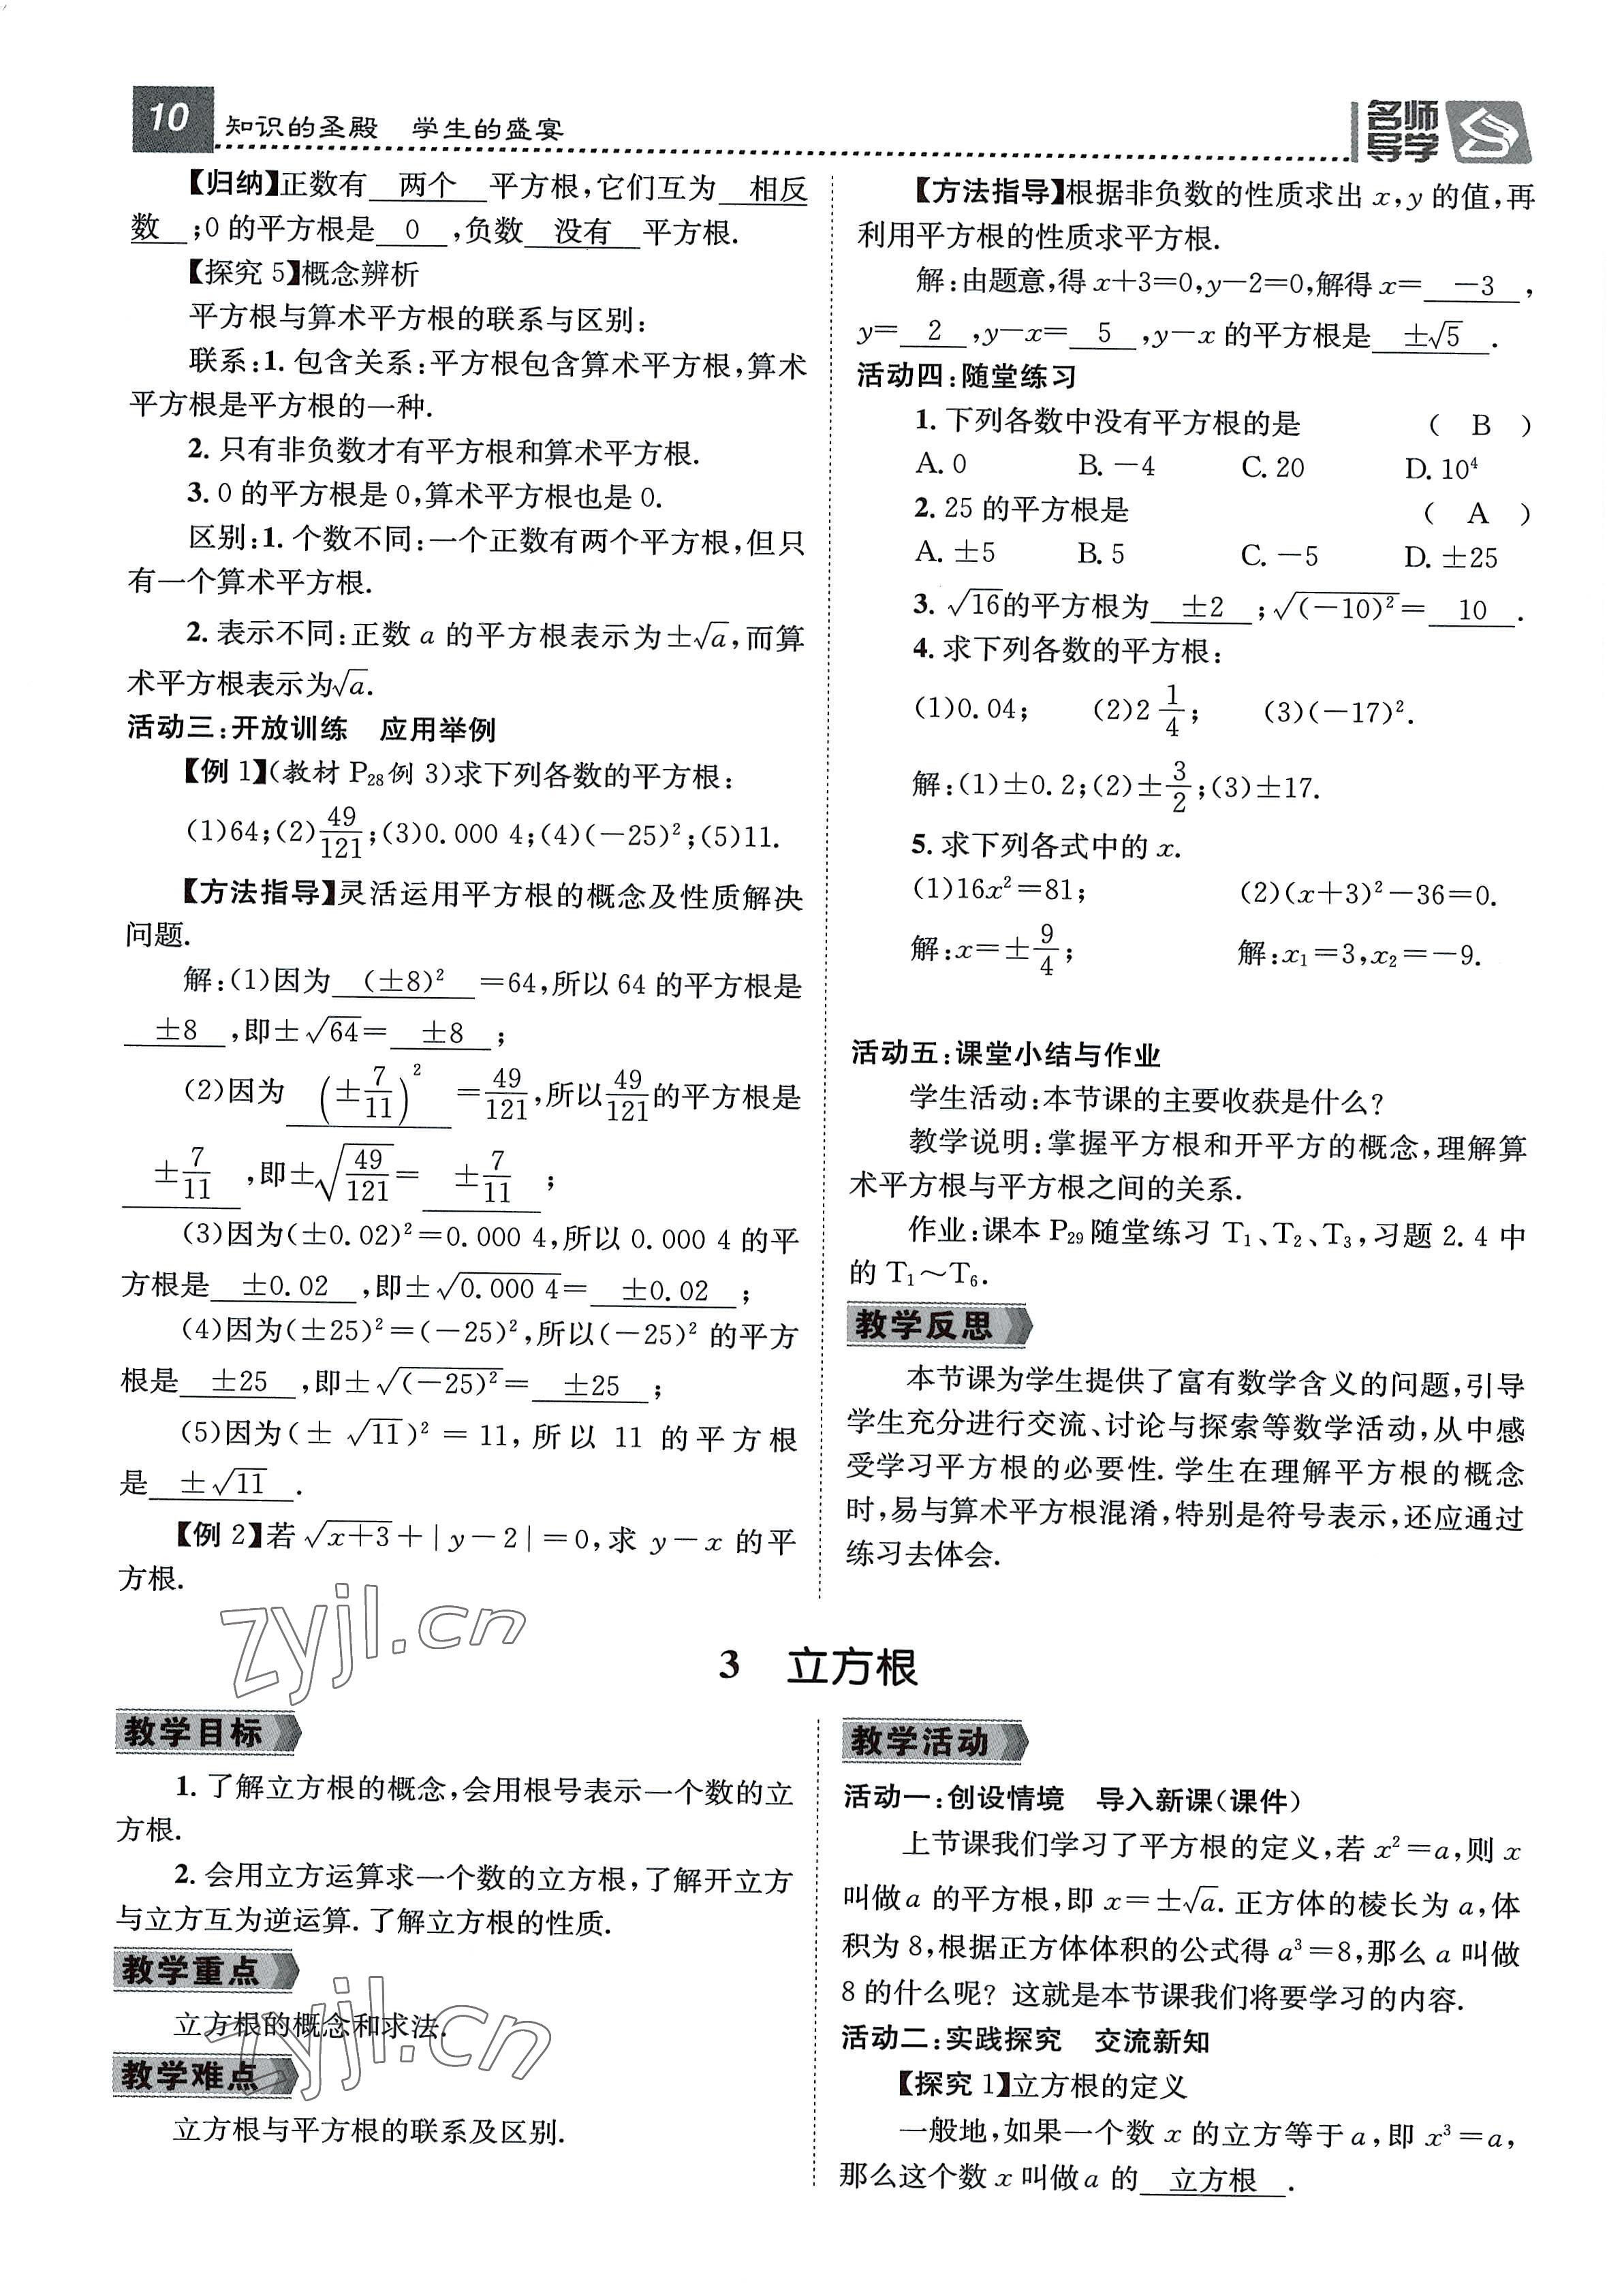 10 知识的圣殿 学生的盛宴
名师导学
【归纳】正数有 两个 平方根,它们互为 相反
数 ;0 的平方根是 0 ,负数 没有 平方根.
【探究 5】概念辨析
平方根与算术平方根的联系与区别:
联系:1. 包含关系:平方根包含算术平方根,算术
平方根是平方根的一种.
2. 只有非负数才有平方根和算术平方根.
3. 0 的平方根是 0,算术平方根也是 0.
区别:1. 个数不同:一个正数有两个平方根,但只
有一个算术平方根.
2. 表示不同:正数 a 的平方根表示为±√a,而算
术平方根表示为√a.
活动三:开放训练 应用举例
【例 1】(教材 P₂₈例 3)求下列各数的平方根:
(1)64;(2)49/121;(3)0.000 4;(4)(-25)²;(5)11.
【方法指导】灵活运用平方根的概念及性质解决
问题.
解:(1)因为 (±8)² =64,所以 64 的平方根是
±8 ,即±√64= ±8 ;
(2)因为 (±7/11)² =49/121,所以49/121的平方根是
±7/11 ,即±√(49/121)= ±7/11 ;
(3)因为(±0.02)²=0.000 4,所以 0.000 4 的平
方根是 ±0.02 ,即±√0.000 4= ±0.02 ;
(4)因为(±25)²=(-25)²,所以(-25)² 的平方
根是 ±25 ,即±√(-25)²= ±25 ;
(5)因为(±√11)²=11,所以 11 的平方根
是 ±√11 .
【例 2】若 √(x+3)+|y-2|=0,求 y-x 的平
方根.
【方法指导】根据非负数的性质求出 x,y 的值,再
利用平方根的性质求平方根.
解:由题意,得 x+3=0,y-2=0,解得 x= -3 ,
y= 2 ,y-x= 5 ,y-x 的平方根是 ±√5 .
活动四:随堂练习
1. 下列各数中没有平方根的是 ( B )
A. 0 B. -4 C. 20 D. 10⁴
2. 25 的平方根是 ( A )
A. ±5 B. 5 C. -5 D. ±25
3. √16的平方根为 ±2 ;√(-10)²= 10 .
4. 求下列各数的平方根:
(1)0.04; (2)2 1/4; (3)(-17)².
解:(1)±0.2;(2)±3/2;(3)±17.
5. 求下列各式中的 x.
(1)16x²=81; (2)(x+3)²-36=0.
解:x=±9/4; 解:x₁=3,x₂=-9.
活动五:课堂小结与作业
学生活动:本节课的主要收获是什么?
教学说明:掌握平方根和开平方的概念,理解算
术平方根与平方根之间的关系.
作业:课本 P₂₉随堂练习 T₁、T₂、T₃,习题 2.4 中
的 T₁~T₆.
教学反思
本节课为学生提供了富有数学含义的问题,引导
学生充分进行交流、讨论与探索等数学活动,从中感
受学习平方根的必要性. 学生在理解平方根的概念
时,易与算术平方根混淆,特别是符号表示,还应通过
练习去体会.
zyjl.cn
3 立方根
教学目标
1. 了解立方根的概念,会用根号表示一个数的立
方根.
2. 会用立方运算求一个数的立方根,了解开立方
与立方互为逆运算. 了解立方根的性质.
教学重点
立方根的概念和求法.
zyjl.cn
教学难点
立方根与平方根的联系及区别.
教学活动
活动一:创设情境 导入新课(课件)
上节课我们学习了平方根的定义,若 x²=a,则 x
叫做 a 的平方根,即 x=±√a. 正方体的棱长为 a,体
积为 8,根据正方体体积的公式得 a³=8,那么 a 叫做
8 的什么呢? 这就是本节课我们将要学习的内容.
活动二:实践探究 交流新知
【探究 1】立方根的定义
一般地,如果一个数 x 的立方等于 a,即 x³=a,
那么这个数 x 叫做 a 的 立方根 .